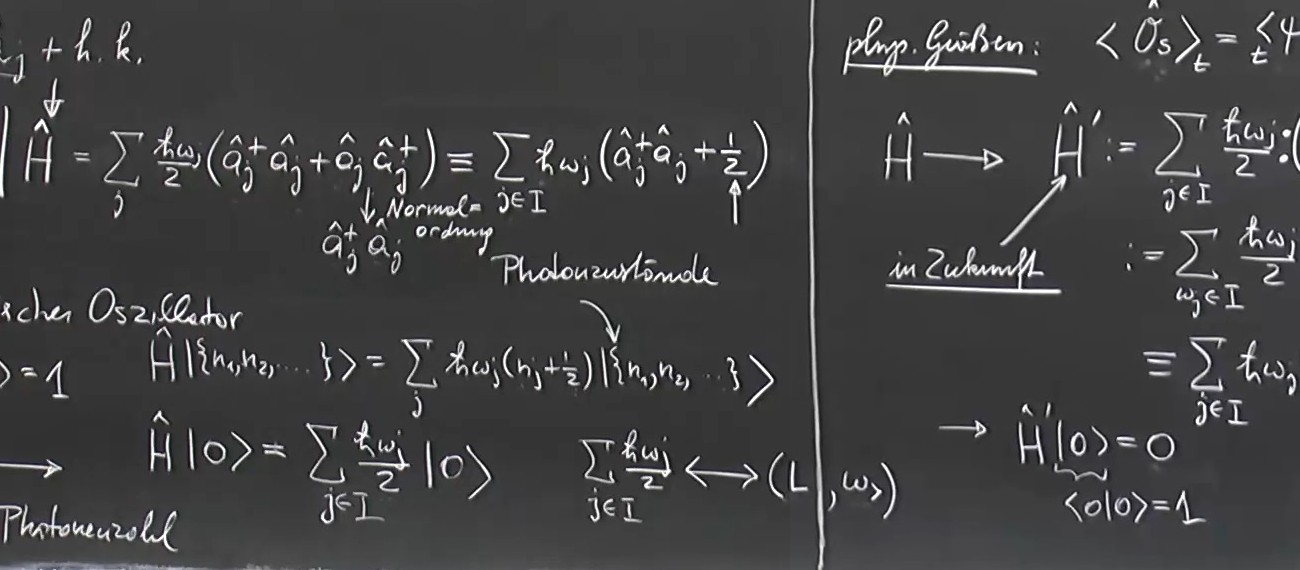 + h. k.
Ĥ = ∑_j ħω_j/2 (â_j^+ â_j + â_j â_j^+) ≡ ∑_{j∈I} ħω_j (â_j^+ â_j + 1/2)
↓ Normal=
ordnung
â_j^+ â_j
Photonzustände
scher Oszillator
⟩ = 1 Ĥ|{n₁,n₂,....}⟩ = ∑_j ħω_j(n_j + 1/2)|{n₁,n₂, ..}⟩
→ Ĥ|0⟩ = ∑_{j∈I} ħω_j/2 |0⟩ ∑_{j∈I} ħω_j/2 ⟷ (L, ω_>)
Photonenzahl
phys. Größen: ⟨Ô_S⟩_t = _t⟨Ψ
Ĥ → Ĥ' := ∑_{j∈I} ħω_j/2 :(
in Zukunft := ∑_{ω_j∈I} ħω_j/2
≡ ∑_{j∈I} ħω_j
→ Ĥ'|0⟩ = 0
⟨0|0⟩ = 1